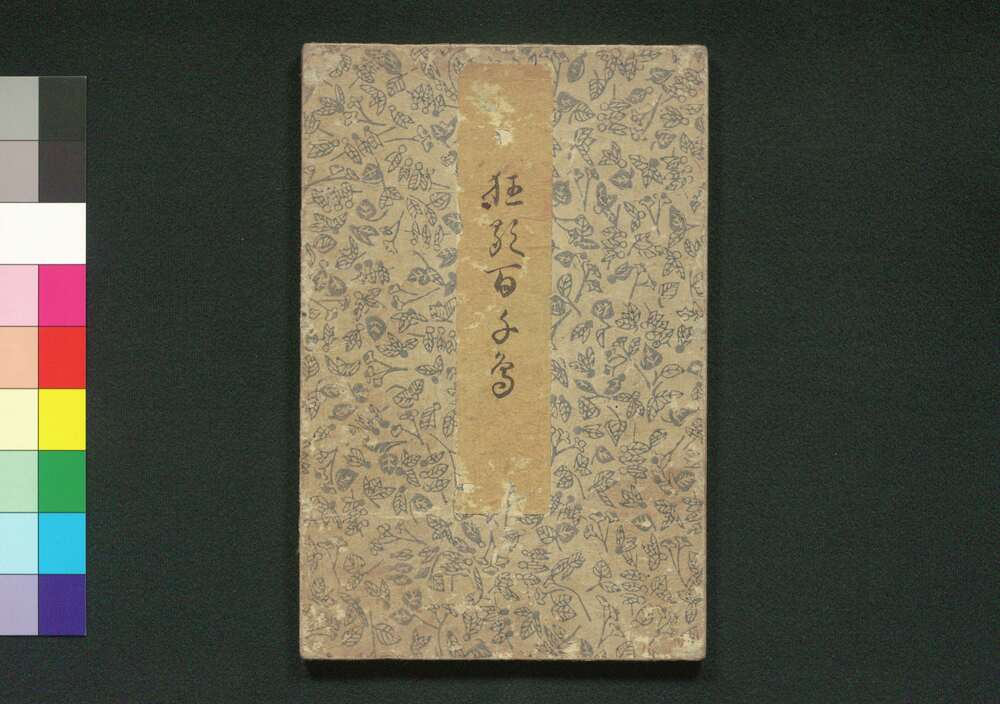 狂歌百千鳥